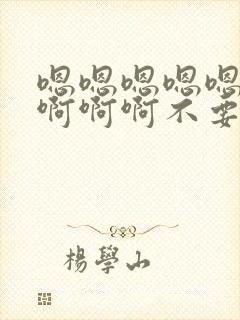 嗯嗯嗯嗯嗯
啊啊啊不要
楊學山